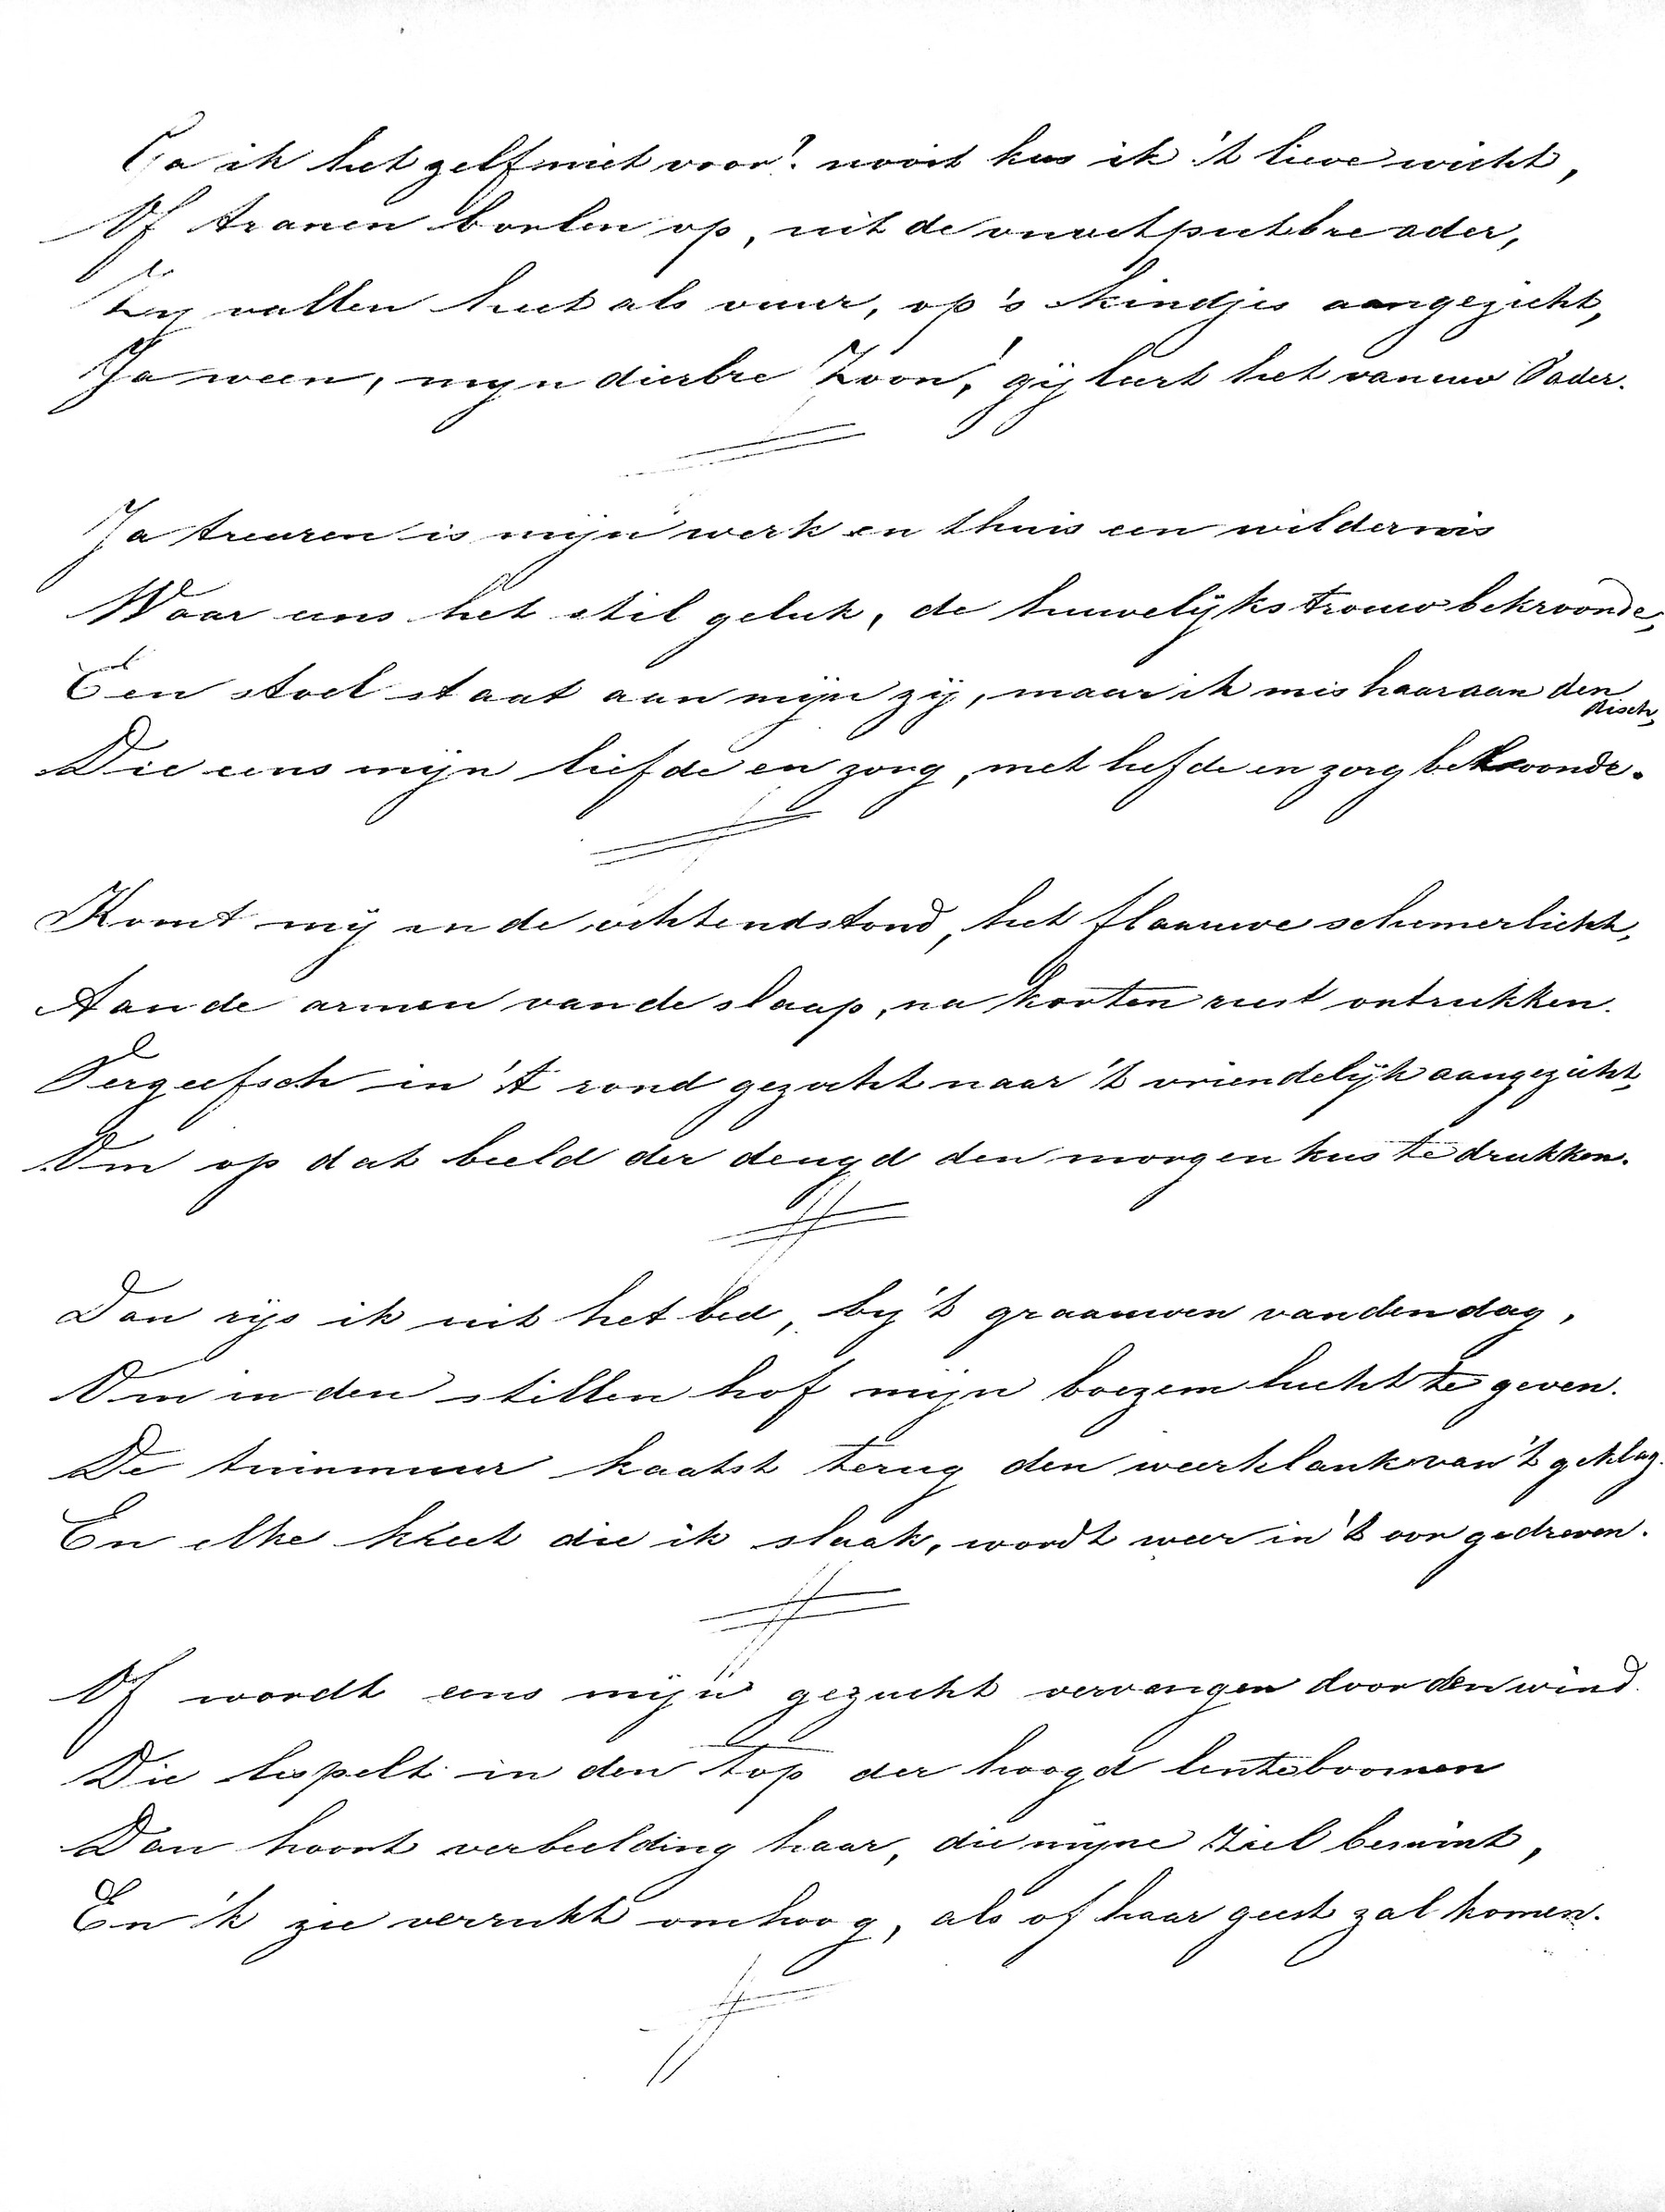 Ga ik het zelf niet voor? nooit kus ik 't lieve wicht,
Of tranen borlen op, uit de onuitputbre ader,
Zy vallen heet als vuur, op 's kindjes aangezicht,
Ja ween, myn dierbre Zoon! gij leert het van uw Vader.
Ja treuren is mijn werk en thuis een wildernis
Waar eens het stil geluk, de huwelijks trouw bekroonde,
Een stoel staat aan mijn zij, maar ik mis haar aan den
disch,
Die eens mijn liefde en zorg, met liefde en zorg bekroonde.
Komt mij in de ochtendstond, het flaauwe schemerlicht,
Aan de armen van de slaap, na korten rust ontrukken.
Vergeefsch in 't rond gezocht naar 't vriendelijk aangezicht,
Om op dat beeld der deugd den morgen kus te drukken.
Dan rijs ik uit het bed, by 't graauwen van den dag,
Om in den stillen hof mijn boezem lucht te geven.
De tuinmuur kaatst terug den weerklank van 't geklag.
En elke kreet die ik slaak, wordt weer in 't oor gedreven.
Of wordt eens mijn gezucht vervangen door den wind.
Die lispelt in den top der hoogd lenteboomen
Dan hoort verbeelding haar, die mijne ziel bemint,
En 'k zie verrukt omhoog, als of haar geest zal komen.